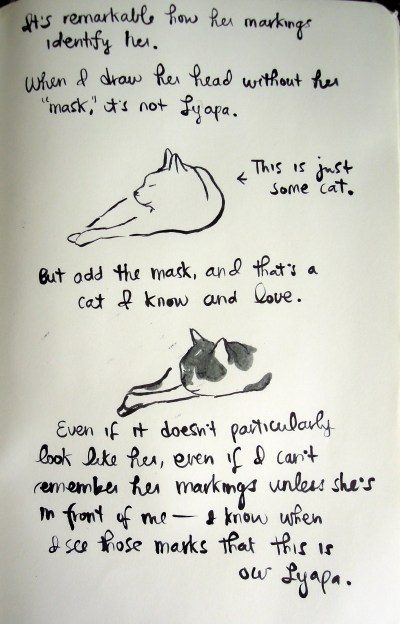 It's remarkable how her markings
identify her.
When I draw her head without her
"mask," it's not Lyapa.
← This is just
some cat.
But add the mask, and that's a
cat I know and love.
Even if it doesn't particularly
look like her, even if I can't
remember her markings unless she's
in front of me — I know when
I see those marks that this is
our Lyapa.